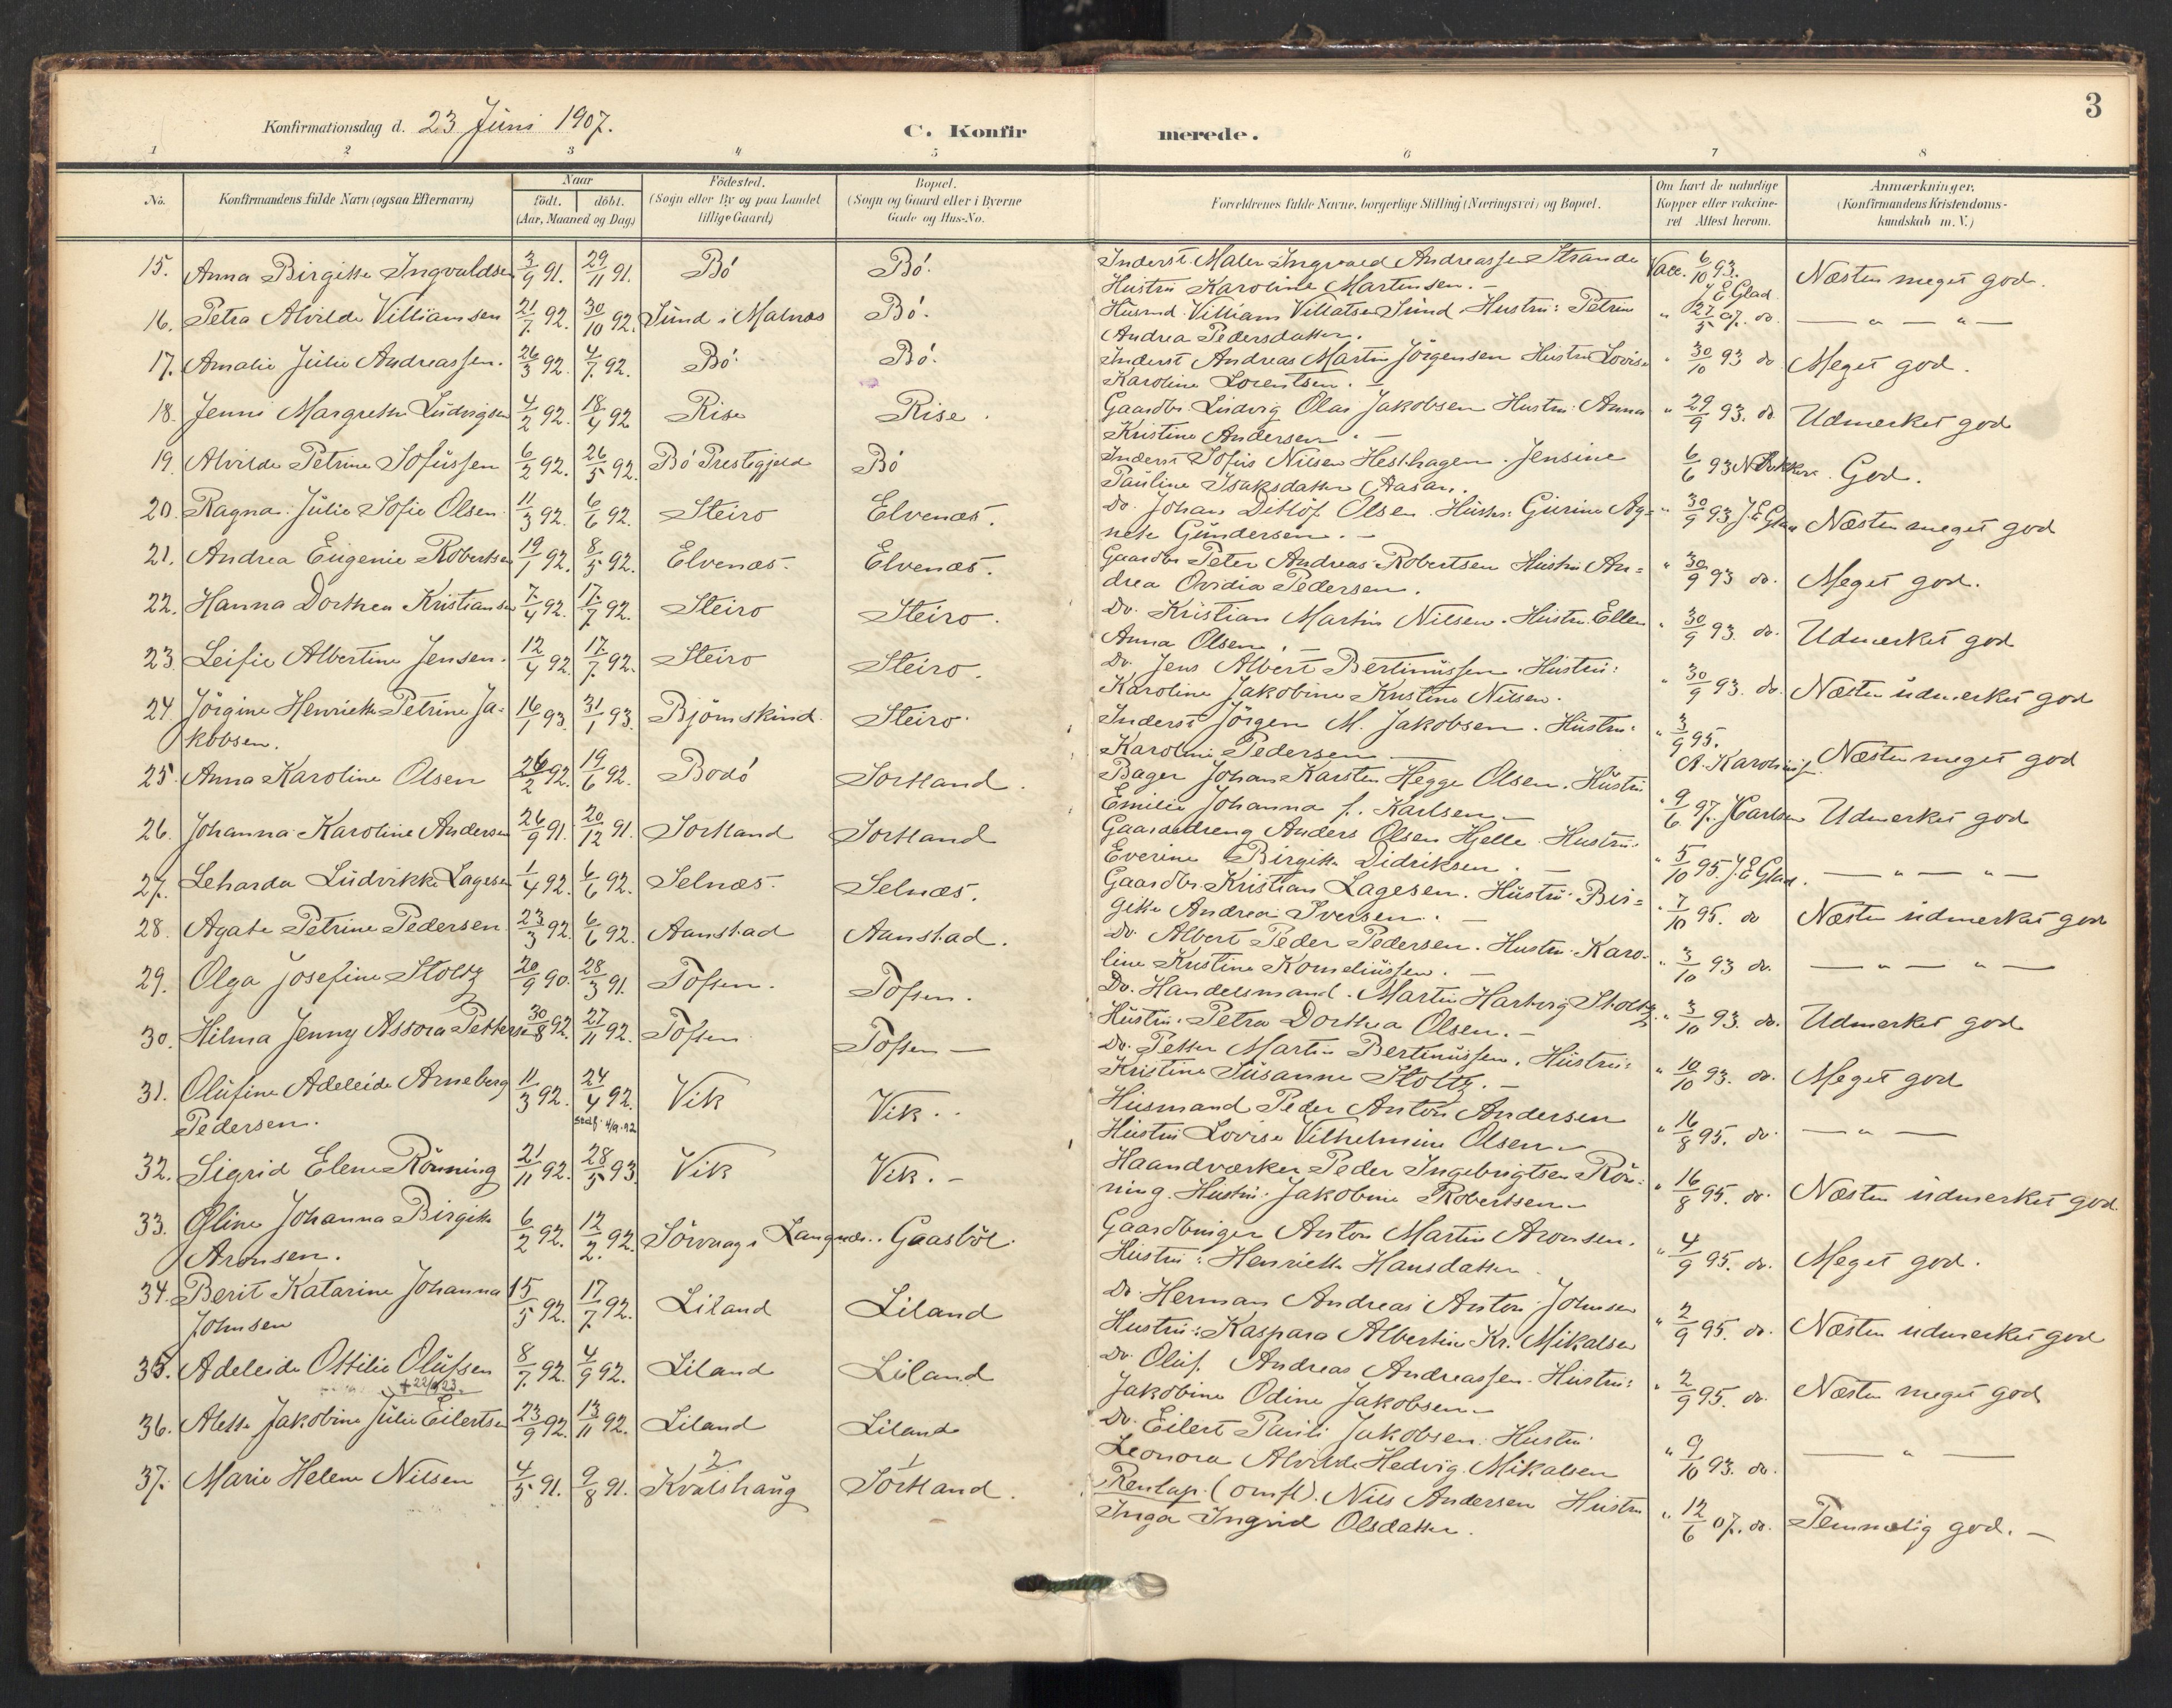 3
Konfirmationsdag d. 23 Juni 1907. C. Konfirmerede.
1 2 3 4 5 6 7 8
No. Konfirmandens fulde Navn (ogsaa Efternavn) Naar födt. döbt. (Aar, Maaned og Dag) Födested. (Sogn eller By og paa Landet tillige Gaard) Bopæl. (Sogn og Gaard eller i Byerne Gade og Hus-No. Forældrenes fulde Navne, borgerlige Stilling (Næringsvei) og Bopæl. Om havt de naturlige Kopper eller vakcineret Attest herom. Anmærkninger. (Konfirmandens Kristendomskundskab m. V.)
15. Anna Birgitte Ingvaldsen 3/9 91. 29/11 91. Bö Bö. Inderst. Maler Ingvald Andreassen Strande Vacc. 6/10 93. Næsten meget god.
Hustru Karoline Martinsen. - J E Glad
16. Petra Alvilde Villiamsen 21/7 92. 30/10 92. Sund i Malnæs Bö. Husmd. Villiam Villatsen Sund. Hustru: Petrine " 27/5 07. do. — " — " —
Andrea Pedersdatter.
17. Amalie Julie Andreassen. 26/3 92. 4/7 92. Bö. Bö. Inderst Andreas Martin Jörgensen Hustru Lovise " 30/10 93 do. Meget god.
Karoline Lorentsen. -
18. Jenni Margrethe Ludvigsen 4/2 92. 18/4 92 Rise Rise. Gaardbr. Ludvig Olai Jakobsen Hustru: Anna " 29/9 93. do. Udmerket god
Kristine Andersen. -
19. Alvilde Petrine Sofussen 6/2 92. 26/5 92. Bö Prestegjeld Bö Inderst Sofus Nilsen Hesthagen. Jensine 6/6 93 God.
Pauline Isaksdatter Aasan.
20. Ragna Julie Sofie Olsen 11/3 92. 6/6 92. Steiro Elvenæs. Do. Johan Ditlöf Olsen. Hustru: Gurine Ag= " 30/9 93 J. E. Glad Næsten meget god
nete Gundersen. -
21. Andrea Eugenie Robertsen 19/1 92. 8/5 92. Elvenæs. Elvenæs. Gaardbr Peter Andreas Robertsen Hustru An= " 30/9 93 do. Meget god.
drea Ovidia Pedersen.
22. Hanna Dorthea Kristiansen 7/4 92. 17/7 92. Steiro Steiro. Do. Kristian Martin Nilsen. Hustru. Ellen " 30/9 93. do. Udmerket god
Anna Olsen. -
23. Leifie Albertine Jensen. 12/4 92. 17/7 92. Steiro Steiro. Do. Jens Albert Bertinussen. Hustru: " 30/9 93. do. Næsten udmerket god
Karoline Jakobine Kristine Nilsen.
24. Jörgine Henriette Petrine Ja- 16/1 93 31/1 93. Björnskind. Steiro. Inderst Jörgen M. Jakobsen. Hustru: " 3/9 95.
kobsen. Karoline Pedersen — Næsten meget god
25. Anna Karoline Olsen 26/2 92. 19/6 92. Bodö Sortland. Bager Johan Karsten Hegge Olsen. Hustru " 9/6 97. J Carlsen Udmerket god
Emilie Johanna f. Karlsen. -
26. Johanna Karoline Andersen 26/9 91. 20/12 91. Sortland Sortland Gaardedreng Anders Olsen Hjelle. Hustru: " 5/10 95. J. E Glad. — " — " —
Everine Birgitte Didriksen. —
27. Leharda Ludvikke Lagesen 1/4 92. 6/6 92. Selnæs. Selnæs. Gaardbr. Kristian Lagesen. Hustru: Bir= " 7/10 95. do Næsten udmerket god
gitte Andrea Iversen. -
28. Agate Petrine Pedersen 23/3 92. 6/6 92. Aanstad Aanstad. Do. Albert Peder Pedersen. Hustru. Karo- " 3/10 93 do. — " — " —
line Kristine Korneliussen. -
29. Olga Josefine Stoltz 20/9 90. 28/3 91. Tofsen. Tofsen. Do. Handelsmand. Martin Hartvig Stoltz. " 3/10 93. do. Udmerket god
Hustru. Petra Dorthea Olsen. -
30. Hilma Jenny Assora Pettersen 30/8 92. 27/11 92. Tofsen Tofsen — Do. Petter Martin Bertinussen. Hustru: " 10/10 93. do. Meget god
Kristine Susanne Stoltz. -
31. Olufine Adeleide Arneberg 11/3 92. 24/4 92. Vik Vik.. Husmand Peder Anton Andersen " 16/8 95. do. — " —
Pedersen. stadf. 4/9.92 Hustru Lovise Vilhelmine Olsen -
32. Sigrid Elene Rönning 21/11 92. 28/5 93. Vik Vik. - Haandværker Peder Ingebrigtsen Rön- " 16/8 95. do. Næsten udmerket god
ning. Hustru. Jakobine Robertsen -
33. Oline Johanna Birgitte 6/2 92. 12/2. 92. Sörvaag i Langenæs.. Gaasböl. Gaardbruger Anton Martin Aronsen. " 4/9 95. do. Meget god.
Aronsen. Hustru: Henriette Hansdatter.
34. Berit Katarine Johanna 15/5 92. 17/7 92. Liland Liland Do. Herman Andreas Anton Johnsen " 2/9 95. do. Næsten udmerket god
Johnsen Hustru: Kaspara Albertine Kr. Mikalsen
35. Adeleide Ottilie Olufsen 8/7 92. 4/9 92. Liland Liland Do. Oluf. Andreas Andreassen. Hustru: " 2/9 95. do. Næsten meget god
Jakobine Odine Jakobsen -
36. Alette Jakobine Julie Eilertsen 23/9 92. 13/11 92. Liland Liland Do. Eilert Pauli Jakobsen. Hustru: " 9/10 93. do. — " —
Leonora Alvilde Hedvig. Mikalsen
37. Marie Helene Nilsen 4/5 91. 9/8 91. Kvalshaug Sortland. Renlap. (omfl). Nils Andersen Hustru " 12/6 07. do. Temmelig god. -
Inga Ingrid Olsdatter.